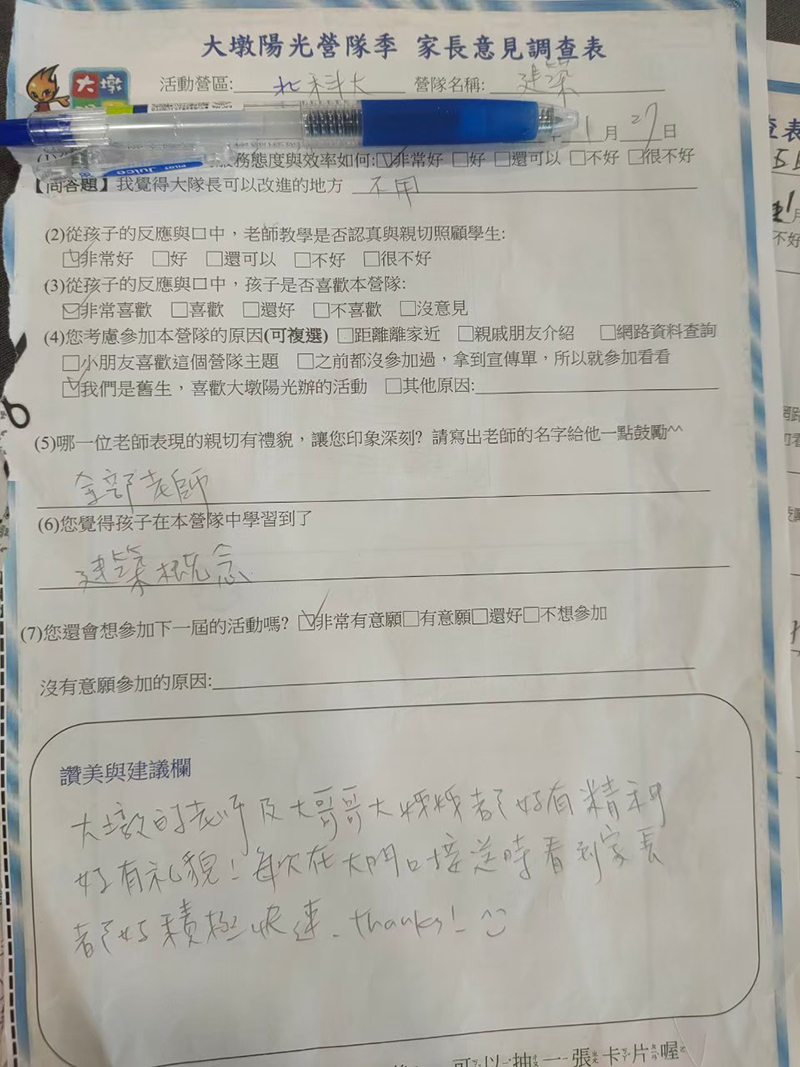 大墩陽光營隊季 家長意見調查表
大墩
活動營區:北科大 營隊名稱:建築
1月27日
務態度與效率如何:☑非常好 □好 □還可以 □不好 □很不好
【問答題】我覺得大隊長可以改進的地方 不用
(2)從孩子的反應與口中,老師教學是否認真與親切照顧學生:
☑非常好 □好 □還可以 □不好 □很不好
(3)從孩子的反應與口中,孩子是否喜歡本營隊:
☑非常喜歡 □喜歡 □還好 □不喜歡 □沒意見
(4)您考慮參加本營隊的原因(可複選) □距離離家近 □親戚朋友介紹 □網路資料查詢
□小朋友喜歡這個營隊主題 □之前都沒參加過,拿到宣傳單,所以就參加看看
☑我們是舊生,喜歡大墩陽光辦的活動 □其他原因:
(5)哪一位老師表現的親切有禮貌,讓您印象深刻? 請寫出老師的名字給他一點鼓勵^^
全部老師
(6)您覺得孩子在本營隊中學習到了
建築概念
(7)您還會想參加下一屆的活動嗎? ☑非常有意願□有意願□還好□不想參加
沒有意願參加的原因:
讚美與建議欄
大墩的老师及大哥哥大姊姊都好有精神
好有礼貌!每次在大門口接送時看到家長
都好積極快速. thanks! ^^
可以抽一張卡片喔